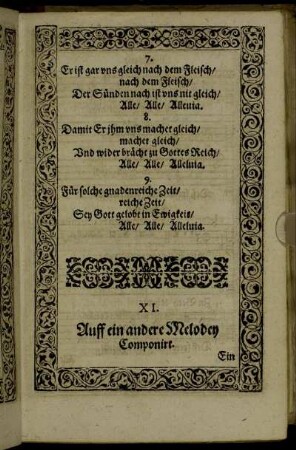 7.
Er ist gar vns gleich nach dem Fleisch/
nach dem Fleisch/
Der Sünden nach ist vns nit gleich/
Alle/ Alle/ Alleluia.
8.
Damit Er jhm vns machet gleich/
machet gleich/
Vnd wider brächt zu Gottes Reich/
Alle/ Alle/ Alleluia.
9.
Für solche gnadenreiche Zeit/
reiche Zeit/
Sey Gott gelobt in Ewigkeit/
Alle/ Alle/ Alleluia.
XI.
Auff ein andere Melodey
Componirt.
Ein